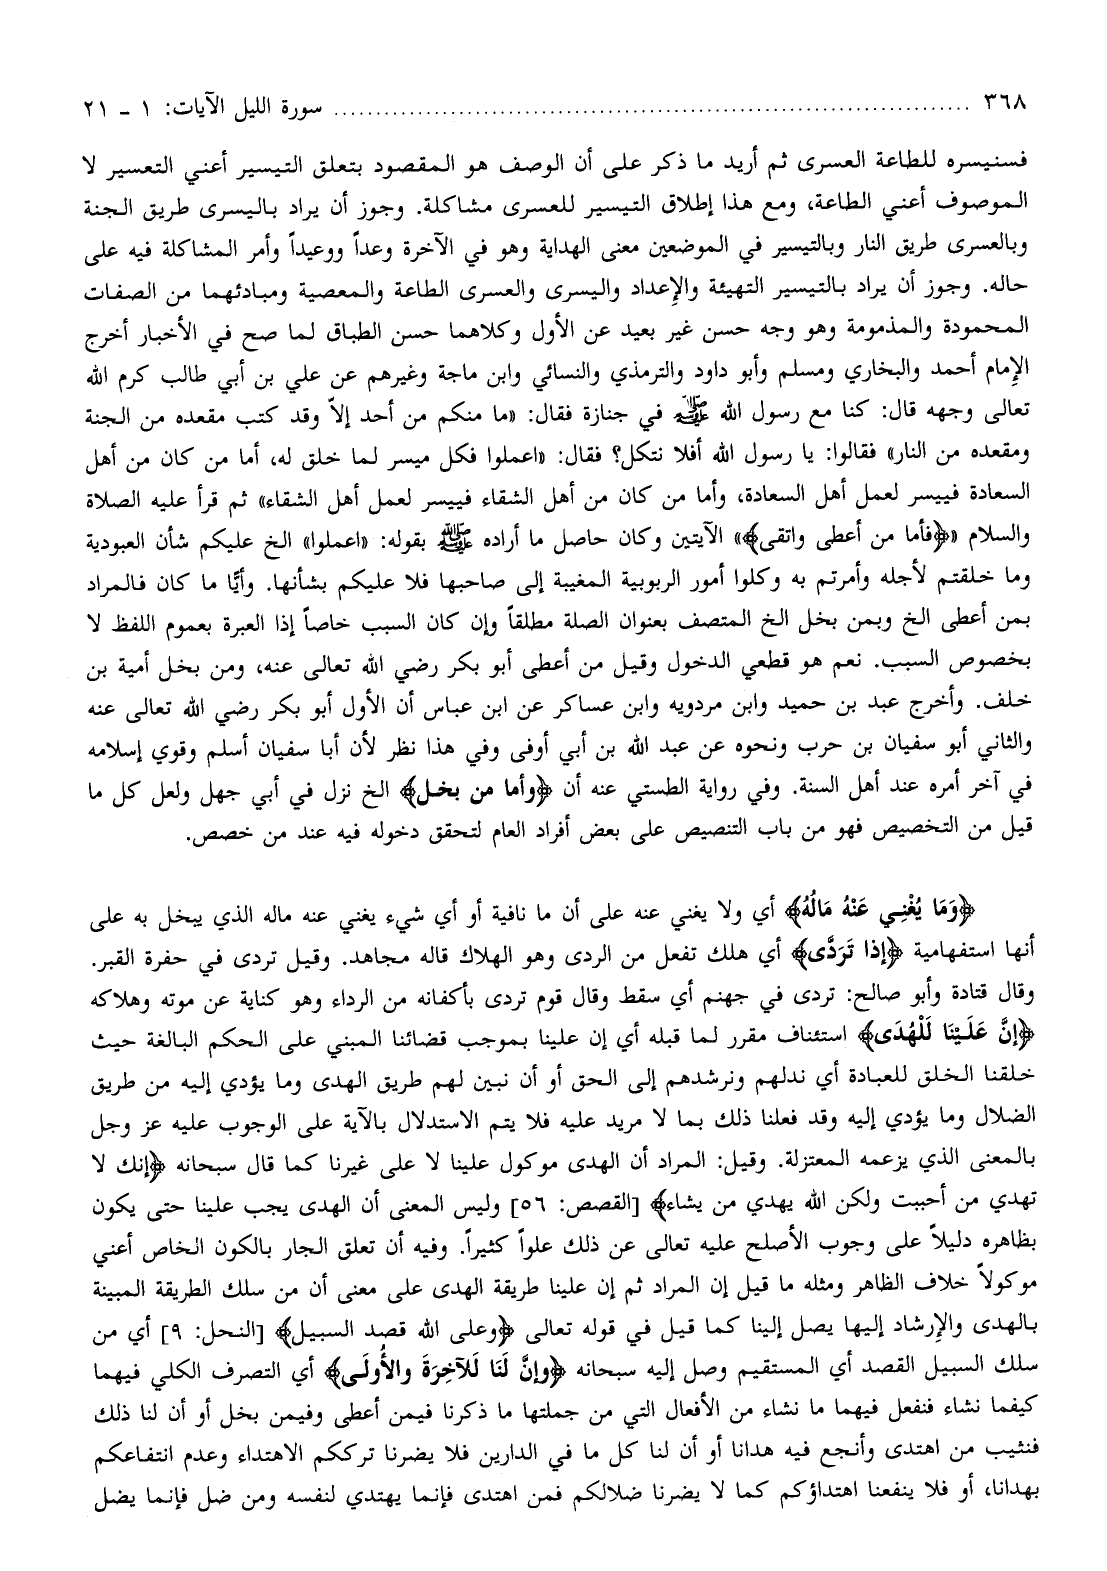 ٣٦٨ ........ سورة الليل الآيات: ١ - ٢١
فسنيسره للطاعة العسرى ثم أريد ما ذكر على أن الوصف هو المقصود بتعلق التيسير أعني التعسير لا
الموصوف أعني الطاعة، ومع هذا إطلاق التيسير للعسرى مشاكلة. وجوز أن يراد باليسرى طريق الجنة
وبالعسرى طريق النار وبالتيسير في الموضعين معنى الهداية وهو في الآخرة وعداً ووعيداً وأمر المشاكلة فيه على
حاله. وجوز أن يراد بالتيسير التهيئة والإعداد واليسرى والعسرى الطاعة والمعصية ومبادئهما من الصفات
المحمودة والمذمومة وهو وجه حسن غير بعيد عن الأول وكلاهما حسن الطباق لما صح في الأخبار أخرج
الإمام أحمد والبخاري ومسلم وأبو داود والترمذي والنسائي وابن ماجة وغيرهم عن علي بن أبي طالب كرم الله
تعالى وجهه قال: كنا مع رسول الله ﷺ في جنازة فقال: «ما منكم من أحد إلاّ وقد كتب مقعده من الجنة
ومقعده من النار» فقالوا: يا رسول الله أفلا نتكل؟ فقال: «اعملوا فكل ميسر لما خلق له، أما من كان من أهل
السعادة فييسر لعمل أهل السعادة، وأما من كان من أهل الشقاء فييسر لعمل أهل الشقاء» ثم قرأ عليه الصلاة
والسلام «﴿فأما من أعطى واتقى﴾» الآيتين وكان حاصل ما أراده ﷺ بقوله: «اعملوا» الخ عليكم شأن العبودية
وما خلقتم لأجله وأمرتم به وكلوا أمور الربوبية المغيبة إلى صاحبها فلا عليكم بشأنها. وأيًّا ما كان فالمراد
بمن أعطى الخ وبمن بخل الخ المتصف بعنوان الصلة مطلقاً وإن كان السبب خاصاً إذا العبرة بعموم اللفظ لا
بخصوص السبب. نعم هو قطعي الدخول وقيل من أعطى أبو بكر رضي الله تعالى عنه، ومن بخل أمية بن
خلف. وأخرج عبد بن حميد وابن مردويه وابن عساكر عن ابن عباس أن الأول أبو بكر رضي الله تعالى عنه
والثاني أبو سفيان بن حرب ونحوه عن عبد الله بن أبي أوفى وفي هذا نظر لأن أبا سفيان أسلم وقوي إسلامه
في آخر أمره عند أهل السنة. وفي رواية الطستي عنه أن ﴿وأما من بخل﴾ الخ نزل في أبي جهل ولعل كل ما
قيل من التخصيص فهو من باب التنصيص على بعض أفراد العام لتحقق دخوله فيه عند من خصص.
﴿وَمَا يُغْنِي عَنْهُ مَالُهُ﴾ أي ولا يغني عنه على أن ما نافية أو أي شيء يغني عنه ماله الذي يبخل به على
أنها استفهامية ﴿إذا تَرَدَّى﴾ أي هلك تفعل من الردى وهو الهلاك قاله مجاهد. وقيل تردى في حفرة القبر.
وقال قتادة وأبو صالح: تردى في جهنم أي سقط وقال قوم تردى بأكفانه من الرداء وهو كناية عن موته وهلاكه
﴿إنَّ عَلَيْنَا لَلْهُدَى﴾ استئناف مقرر لما قبله أي إن علينا بموجب قضائنا المبني على الحكم البالغة حيث
خلقنا الخلق للعبادة أي ندلهم ونرشدهم إلى الحق أو أن نبين لهم طريق الهدى وما يؤدي إليه من طريق
الضلال وما يؤدي إليه وقد فعلنا ذلك بما لا مريد عليه فلا يتم الاستدلال بالآية على الوجوب عليه عز وجل
بالمعنى الذي يزعمه المعتزلة. وقيل: المراد أن الهدى موكول علينا لا على غيرنا كما قال سبحانه ﴿إنك لا
تهدي من أحببت ولكن الله يهدي من يشاء﴾ [القصص: ٥٦] وليس المعنى أن الهدى يجب علينا حتى يكون
بظاهره دليلاً على وجوب الأصلح عليه تعالى عن ذلك علواً كثيراً. وفيه أن تعلق الجار بالكون الخاص أعني
موكولاً خلاف الظاهر ومثله ما قيل إن المراد ثم إن علينا طريقة الهدى على معنى أن من سلك الطريقة المبينة
بالهدى والإرشاد إليها يصل إلينا كما قيل في قوله تعالى ﴿وعلى الله قصد السبيل﴾ [النحل: ٩] أي من
سلك السبيل القصد أي المستقيم وصل إليه سبحانه ﴿وإنَّ لَنَا لَلآخِرَةَ والأُولَى﴾ أي التصرف الكلي فيهما
كيفما نشاء فنفعل فيهما ما نشاء من الأفعال التي من جملتها ما ذكرنا فيمن أعطى وفيمن بخل أو أن لنا ذلك
فنثيب من اهتدى وأنجع فيه هدانا أو أن لنا كل ما في الدارين فلا يضرنا ترككم الاهتداء وعدم انتفاعكم
بهدانا، أو فلا ينفعنا اهتداؤكم كما لا يضرنا ضلالكم فمن اهتدى فإنما يهتدي لنفسه ومن ضل فإنما يضل